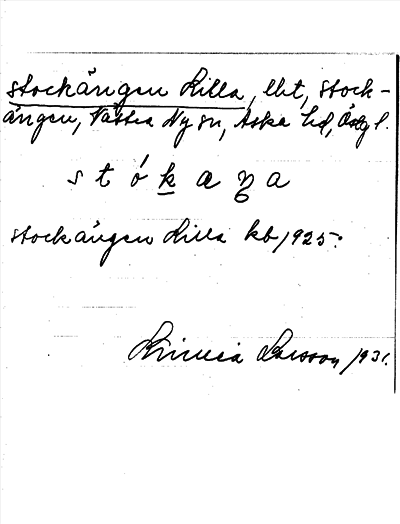 Stockängen Lilla, lht, Stock-
ängen, Västra Ny sn, Aska hd, Östg l.
s t ó k æ ŋ a
Stockängen Lilla kb 1925.
Linnea Larsson 1931.